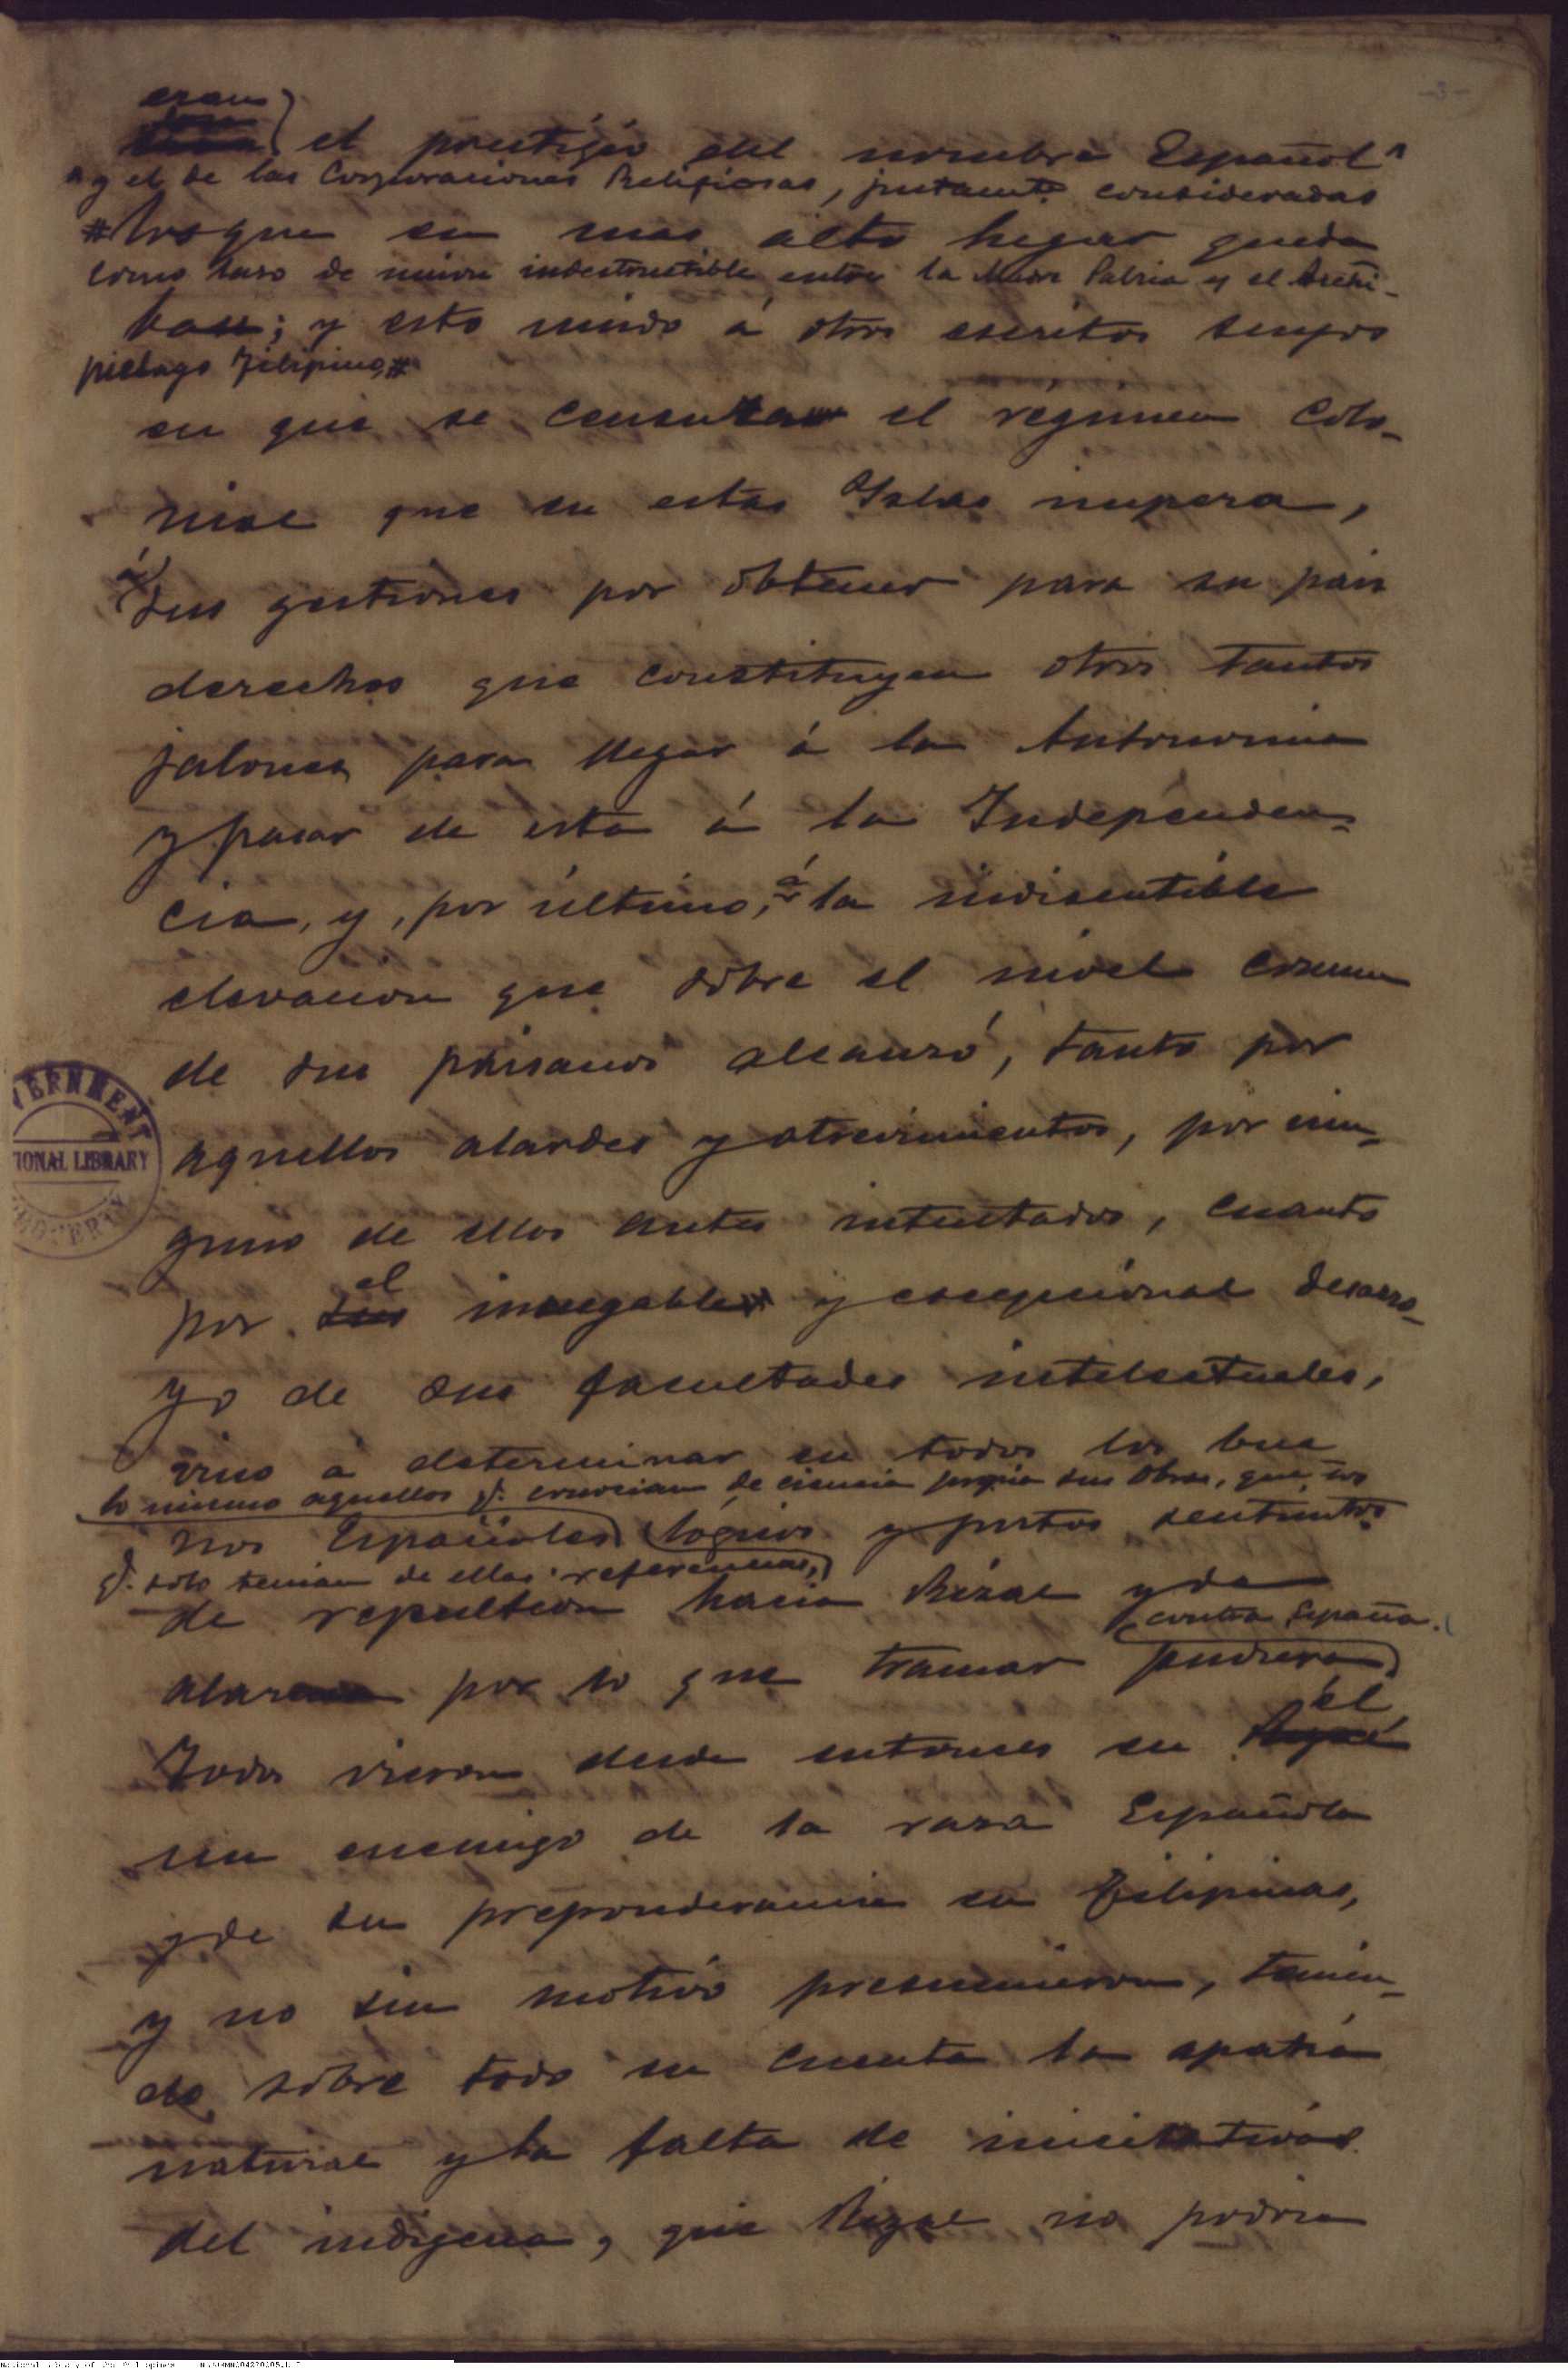 -3-
eran
el prestigio del nombre Español
y el de las Corporaciones Religiosas, justamte. consideradas
# los que en mas alto lugar queda
como lazo de union indestructible entre la Madre Patria y el Archi-
ban; y esto unido á otros escritos suyos
pielago Filipino, #
en que se censuraba el régimen Colo-
nial que en estas Islas impera,
á
sus gestiones por obtener para su pais
derechos que constituyen otros tantos
jalones para llegar á la Autonomia
y pasar de esta á la Independen-
cia, y, por último, á la indiscutible
elevacion que sobre el nivel comun
de sus paisanos alcanzó, tanto por
aquellos alardes y atrevimientos, por nin-
guno de ellos antes intentados, cuanto
el
por sus innegable y excepcional desarro-
yo de sus facultades intelectuales,
vino á determinar en todos los bue
lo mismo aquellos q. conocian de ciencia propia sus Obras, que los
nos Españoles lógicos y justos sentimtos.
q. solo tenian de ellas referencias,
de repulsion hacia Rizal y de
contra España.
alarma por lo que tramar pudiera
él
Todos vieron desde entonces en
un enemigo de la raza Española
y de su preponderancia en Filipinas,
y no sin motivo presumieron, tenien-
do, sobre todo en cuenta la apatia
natural y la falta de iniciativas
del indigena, que Rizal no podria
GOVERNMENT
NATIONAL LIBRARY
PROPERTY
National Library of the Philippines